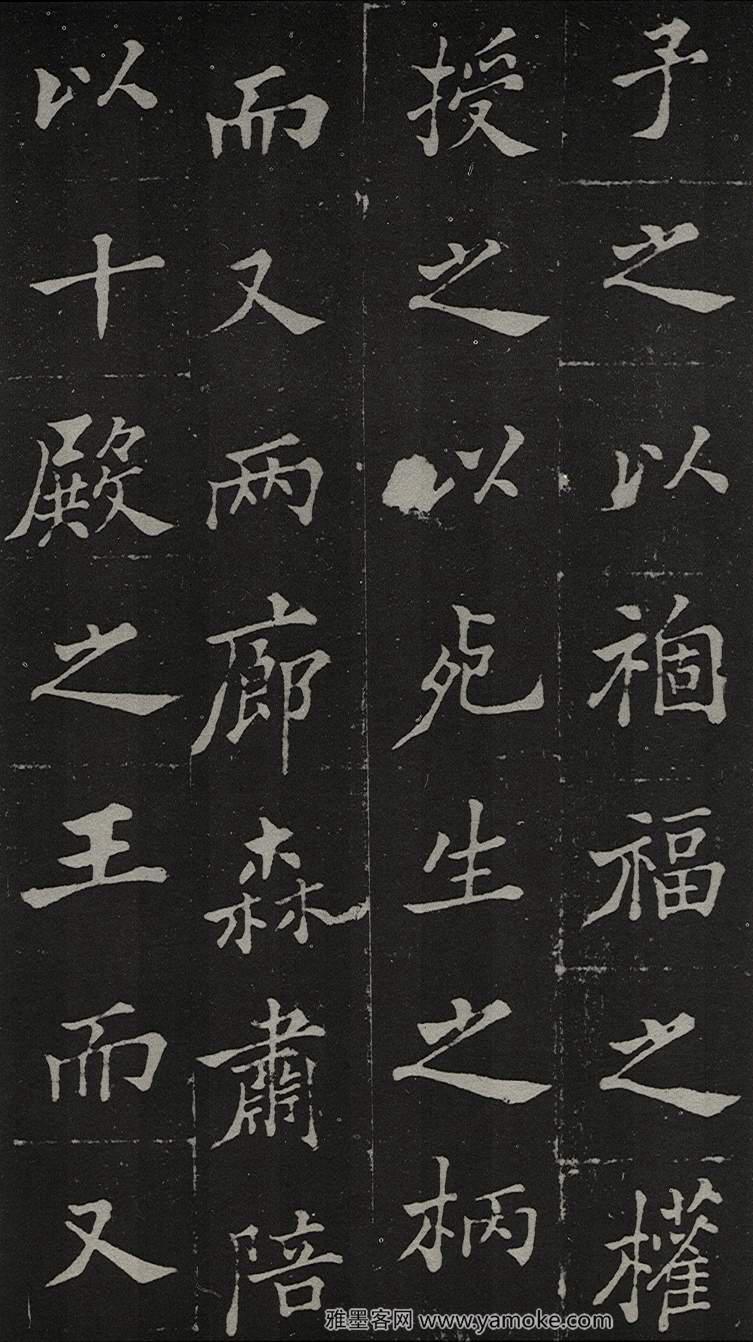 子之以禍福之權
授之以死生之柄
而又两廊森肅陪
以十殿之王而又
雅墨客网 www.yamoke.com